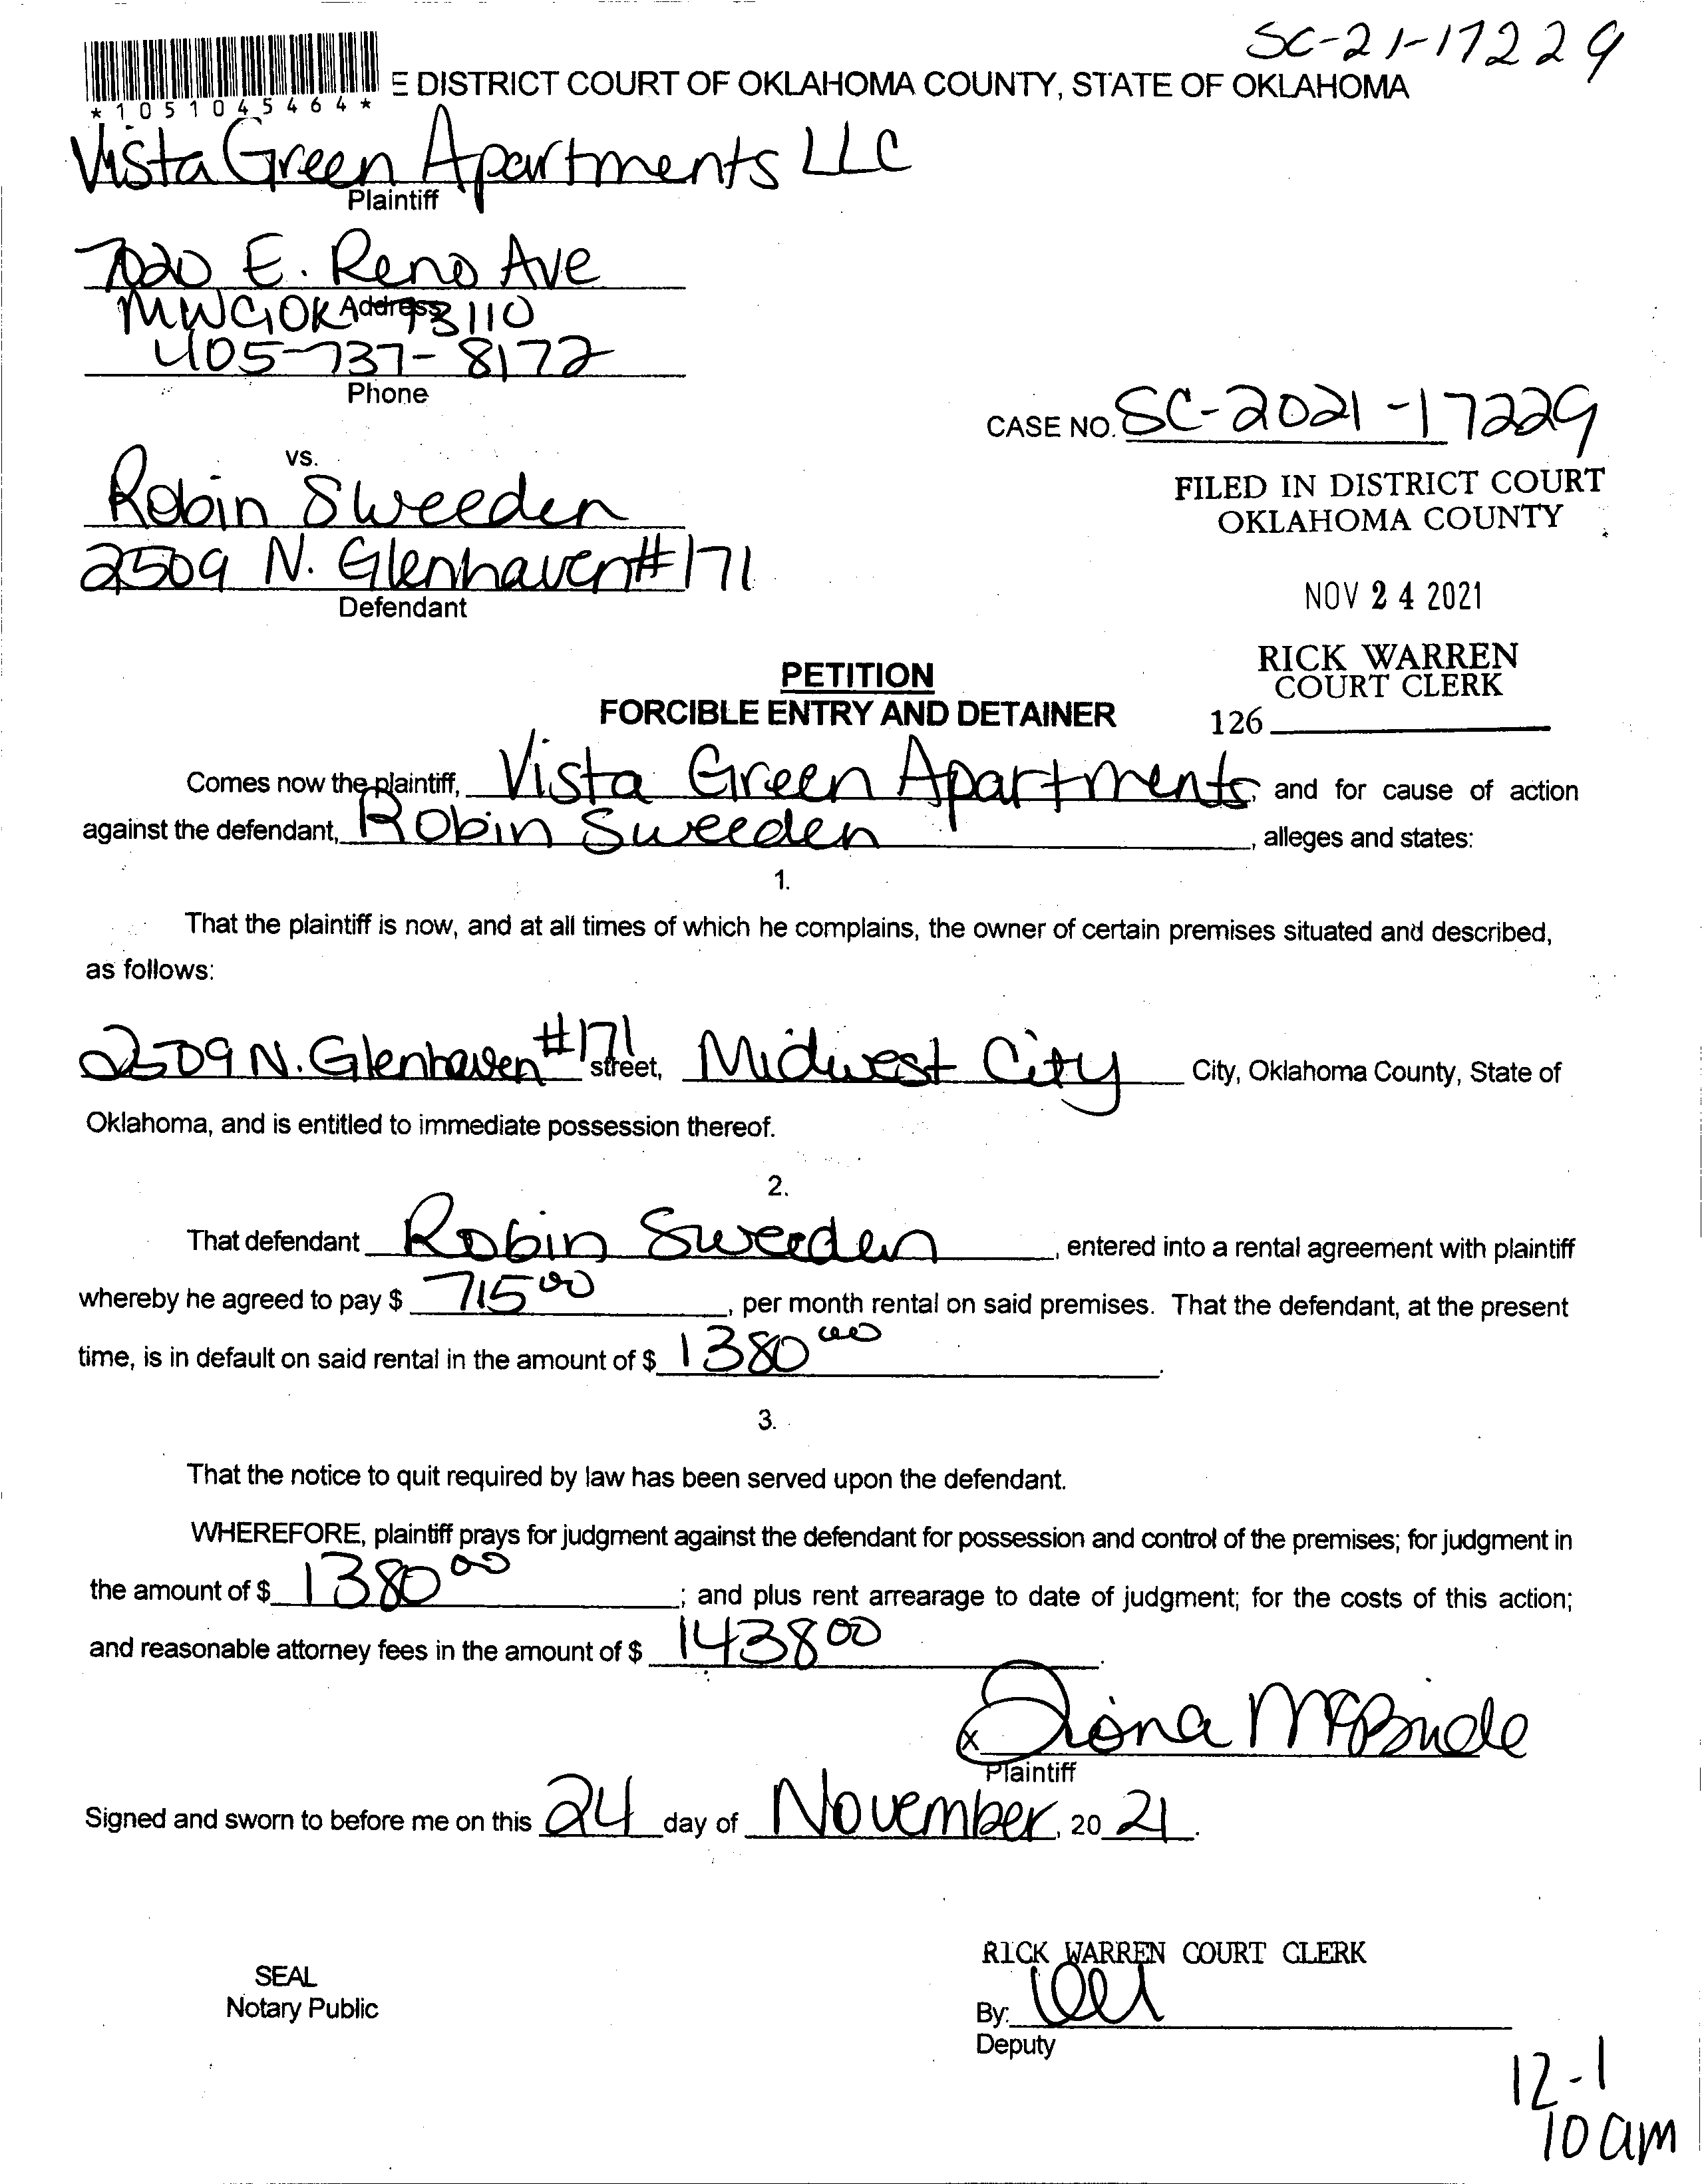 SC-21-17229
E DISTRICT COURT OF OKLAHOMA COUNTY, STATE OF OKLAHOMA
*1051045464*
Vista Green Apartments LLC
Plaintiff
7020 E. Reno Ave
Address
MWC OK 73110
405-737-8172
Phone
CASE NO. SC-2021-17229
vs.
Robin Sweeden
2509 N. Glenhaven #171
Defendant
FILED IN DISTRICT COURT
OKLAHOMA COUNTY
NOV 24 2021
RICK WARREN
COURT CLERK
126
PETITION
FORCIBLE ENTRY AND DETAINER
Comes now the plaintiff, Vista Green Apartments, and for cause of action
against the defendant, Robin Sweeden, alleges and states:
1.
That the plaintiff is now, and at all times of which he complains, the owner of certain premises situated and described,
as follows:
2509 N. Glenhaven #171 street, Midwest City City, Oklahoma County, State of
Oklahoma, and is entitled to immediate possession thereof.
2.
That defendant Robin Sweeden, entered into a rental agreement with plaintiff
whereby he agreed to pay $ 715 00, per month rental on said premises. That the defendant, at the present
time, is in default on said rental in the amount of $ 1380 00.
3.
That the notice to quit required by law has been served upon the defendant.
WHEREFORE, plaintiff prays for judgment against the defendant for possession and control of the premises; for judgment in
the amount of $ 1380 00; and plus rent arrearage to date of judgment; for the costs of this action;
and reasonable attorney fees in the amount of $ 1438 00.
x Diona McBride
Plaintiff
Signed and sworn to before me on this 24 day of November, 20 21.
SEAL
Notary Public
RICK WARREN COURT CLERK
By:
Deputy
12-1
10 am